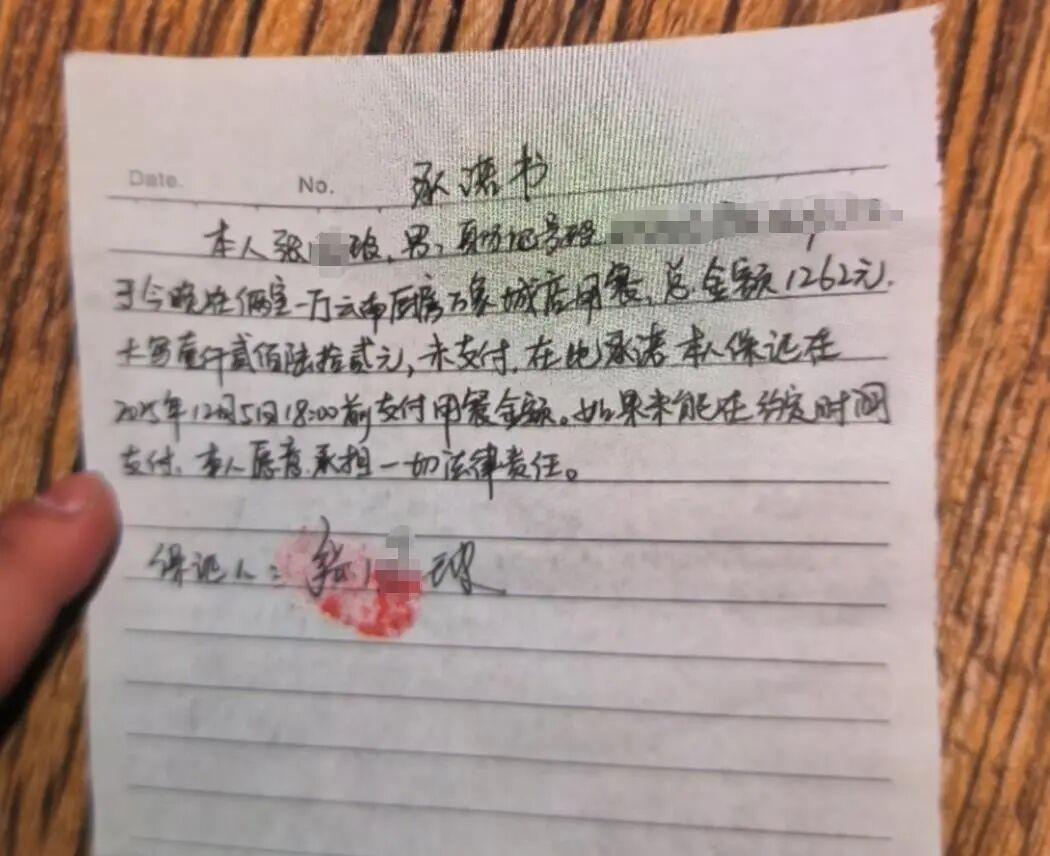 Date. No. 承诺书
本人张 玻,男,身份证号码
于今晚在俩室一厅云南厨房万象城店用餐,总金额1262元.
大写壹仟贰佰陆拾贰元,未支付,在此承诺本人保证在
2025年12月5日18:00前支付用餐金额。如果未能在约定时间
支付,本人愿意承担一切法律责任。
保证人:张